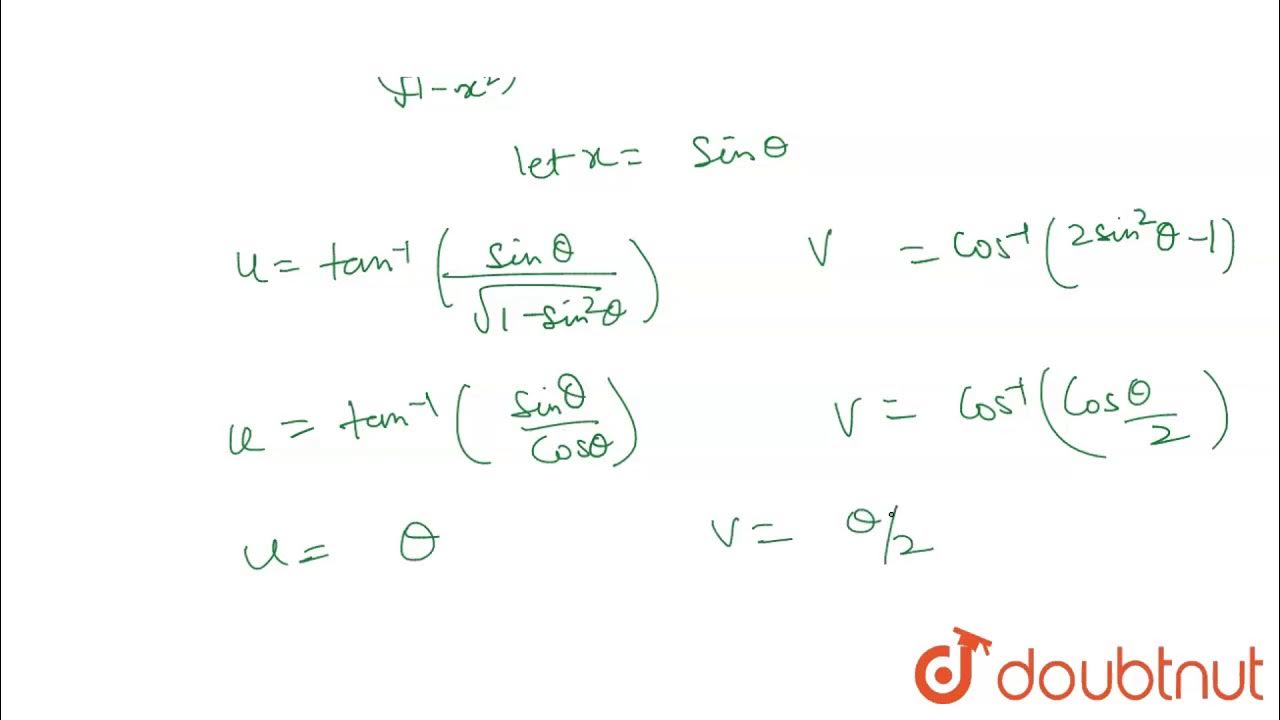 √1-x²)
let x = sinθ
u = tan⁻¹ (sinθ / √1-sin²θ) v = cos⁻¹ (2sin²θ-1)
u = tan⁻¹ (sinθ / cosθ) v = cos⁻¹ (cosθ/2)
u = θ v = θ/2
doubtnut